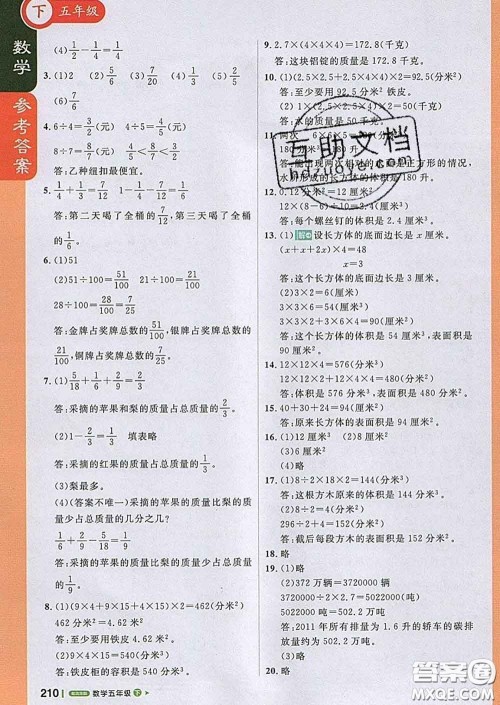 下 五年级
数学
参考答案
(4) 1/2-1/4=1/4
3. (1) 2/5 (2) 5/6 (3) 7/12 (4) 5/24 (5) 5/8
(6) 7/6
4. 6÷4=6/4=3/2(元) 4÷5=4/5(元)
8÷7=8/7(元) 4/5<8/7<3/2
答:乙种纽扣最便宜。
5. 1/7+1/7=2/7 1-1/7-2/7=4/7
答:第二天喝了全桶的2/7,第三天喝了全桶的4/7。
6. (1)51
(2)51÷100=51/100 21÷100=21/100
28÷100=28/100=7/25
答:金牌占奖牌总数的51/100,银牌占奖牌总数的
21/100,铜牌占奖牌总数的7/25。
7. (1)5/18+1/6+2/9=2/3
答:采摘的苹果和梨的质量占总质量的2/3。
(2)1-2/3=1/3 填表略
答:采摘的红果的质量占总质量的1/3。
(3)梨最多。
(4)(答案不唯一)采摘的苹果的质量比梨的质
量少占总质量的几分之几?
1/6+2/9-5/18=1/9
答:采摘的苹果的质量比梨的质量少占总质量
的1/9。
8. (1)(9×4+9×15+4×15)×2=462(分米²)
462分米²=4.62米²
答:至少要用铁皮4.62米²。
(2)9×4×15=540(分米³)
答:铁皮柜的容积是540分米³。
9. 2.7×(4×4×4)=172.8(千克)
答:这块铝锭的质量是172.8千克。
10. (1)(2.5×2.5+2.5×4×2.5)×2=92.5
答:至少要用92.5分米²铁皮。
答:水的质量是50千克。
11. 两次
180分米³
百助文档
bdzuoye.com
12. (1)0.12分米=12厘米
12×(8-6)÷10=2.4(厘米³)
答:每个螺丝钉的体积是2.4厘米³。
13. (1) 设长方体的底面边长是x厘米。
(x+x+2x)×4=48
x=3
答:这个长方体的底面边长是3厘米。
(2)3×2=6(厘米)
3×3×2+3×6×4=90(厘米²)
3×3×6=54(厘米³)
答:这个长方体的体积是54厘米³,表面积是
90厘米²。
14. 12×12×4=576(分米³)
12×12×2+12×4×4=480(分米²)
答:体积是576分米³,表面积是480分米²。
15. 40+30+24=94(分米²)
答:原来长方体的表面积是94分米²。
16. (1)3厘米³ (2)8厘米³
17. (1)8÷2×18×2=144(分米³)
答:这根方木原来的体积是144分米³。
(2)8÷2=4(分米²)
296÷2+4=152(分米²)
答:截后每段方木的表面积是152分米²。
18. 略
19. (1)略
(2)372万辆=3720000辆
3720000×1.35=5022000(吨)
5022000吨=502.2万吨
答:2011年所有排量为1.6升的轿车的碳排
放量约是502.2万吨。
20. 略
210 数学五年级 下
答案圈
MXQE.COM